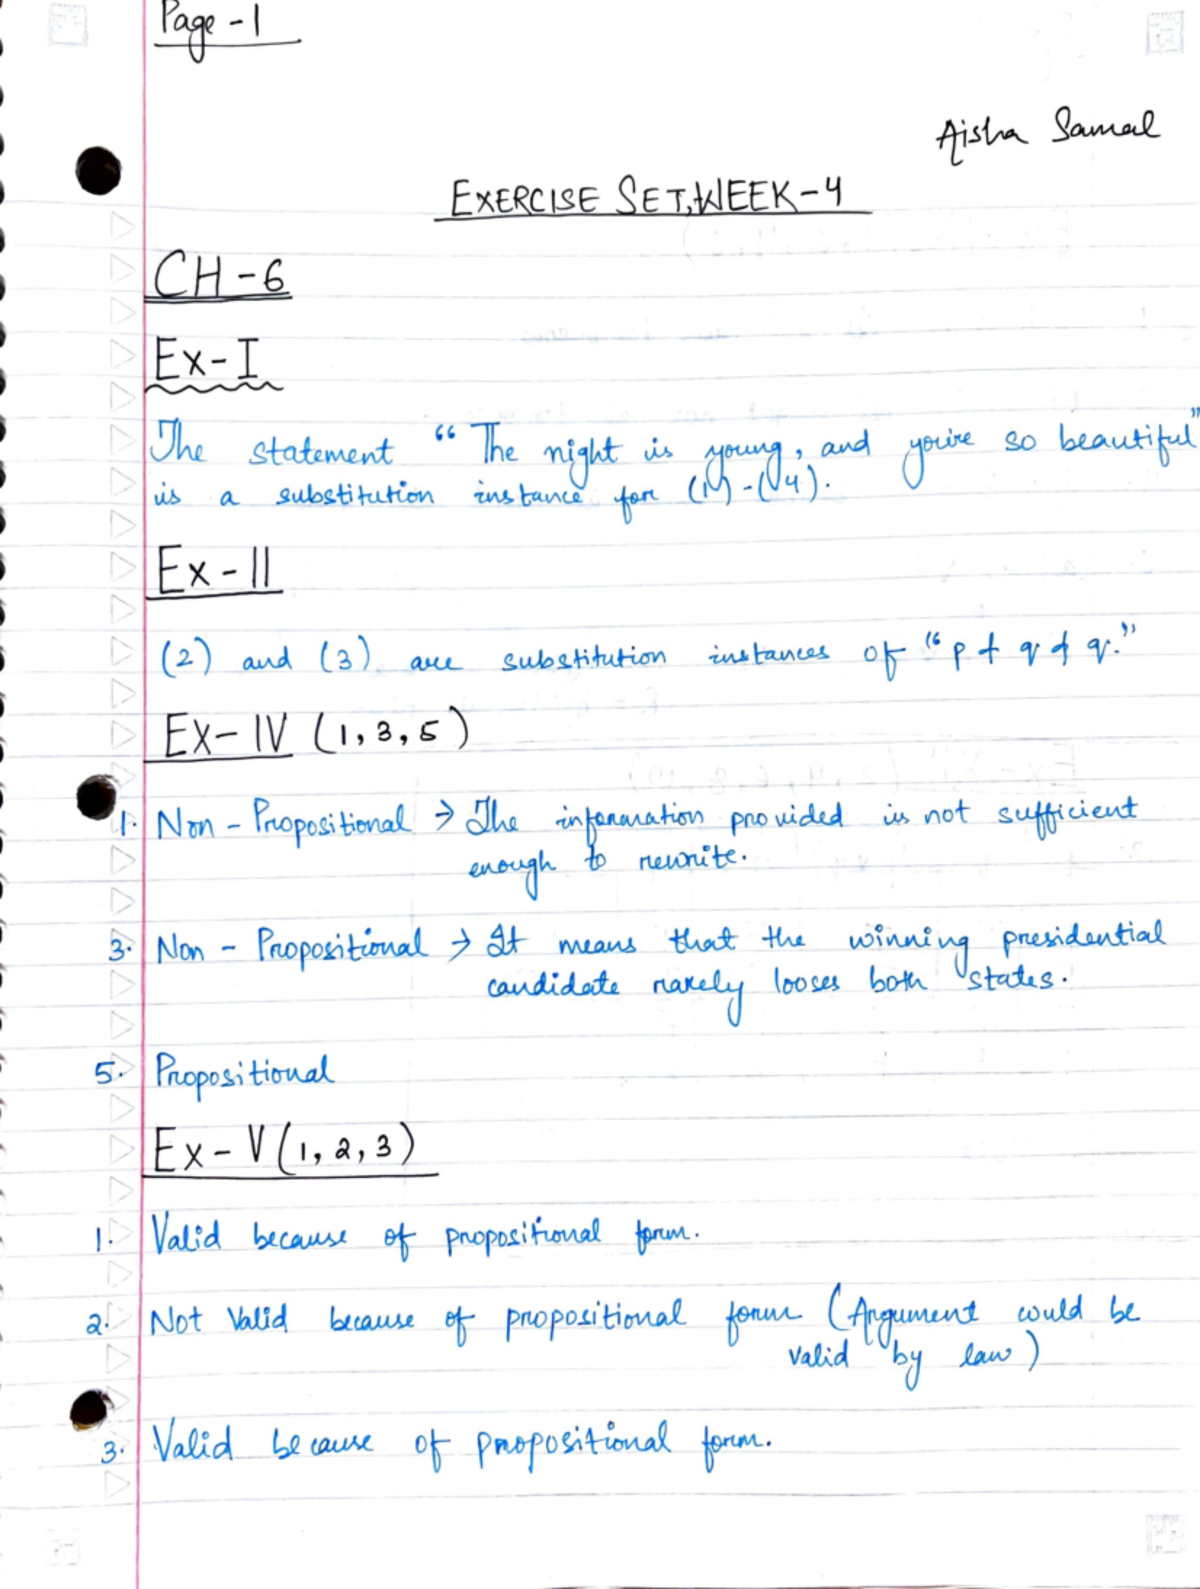 Page - 1
Aisha Samal
EXERCISE SET, WEEK - 4
CH - 6
Ex - I
The statement " The night is young, and you're so beautiful"
is a substitution instance for (1) - (4).
Ex - II
(2) and (3) are substitution instances of "p & q & q."
Ex - IV (1, 3, 5)
1. Non - Propositional → The information provided is not sufficient
enough to rewrite.
3. Non - Propositional → It means that the winning presidential
candidate rarely looses both states.
5. Propositional
Ex - V (1, 2, 3)
1. Valid because of propositional form.
2. Not Valid because of propositional form (Argument would be
valid by law)
3. Valid because of propositional form.